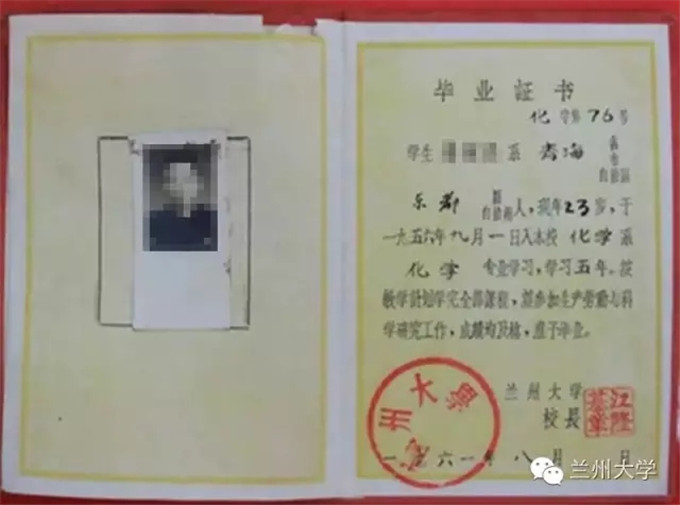 毕业证书
化 字第76号
学生 系 青海 省市自治区
乐都 县自治县 人，现年23岁，于
一九五六年九月一日入本校 化学 系
化学 专业学习，学习五年。按
教学計划学完全部課程，並参加生产劳动与科
学研究工作，成績均及格，准予毕业。
兰州大学
校長 江隆基章
兰州大學
一九六一年八月 日
兰州大学